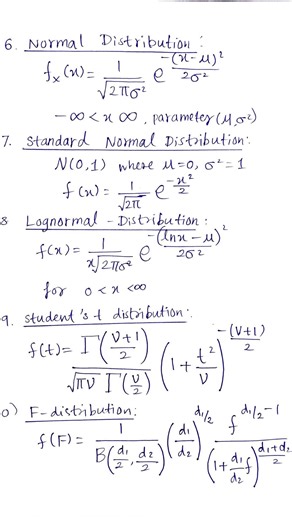 6. Normal Distribution :
fₓ(x) = 1/√(2πσ²) e^(-(x-μ)²/2σ²)
-∞ < x ∞, parameter (μ, σ²)
7. Standard Normal Distribution:
N(0,1) where μ=0, σ²=1
f(x) = 1/√(2π) e^(-x²/2)
8 Lognormal - Distribution :
f(x) = 1/(x√(2πσ²)) e^(-(lnx - μ)²/2σ²)
for 0 < x < ∞
9. Student's-t distribution:
f(t) = Γ((ν+1)/2) / (√(πν) Γ(ν/2)) (1 + t²/ν)^(-(ν+1)/2)
0) F-distribution:
f(F) = 1/B(d₁/2, d₂/2) (d₁/d₂)^(d₁/2) f^(d₁/2 -1) / (1 + d₁/d₂ f)^((d₁+d₂)/2)